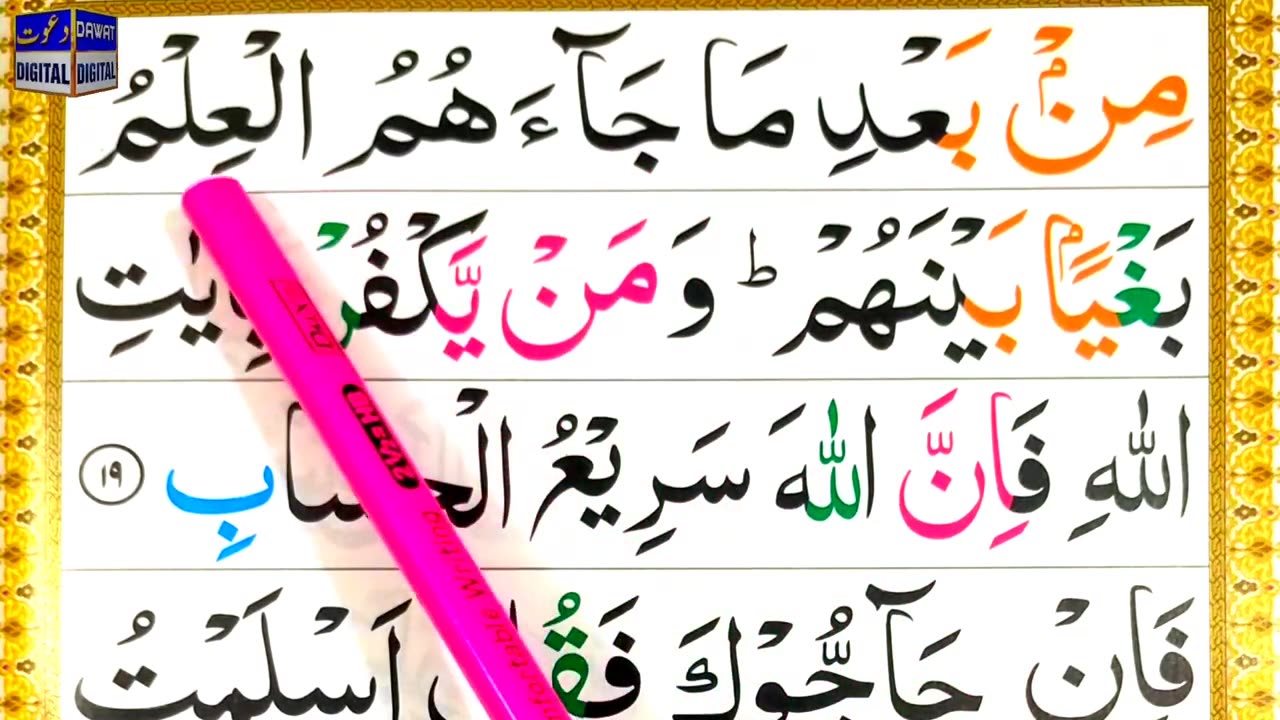 دعوت DAWAT
DIGITAL DIGITAL
مِنْۢ بَعْدِ مَا جَآءَ هُمُ الْعِلْمُ
بَغْيًاۢ بَيْنَهُمْ ؕ وَ مَنْ يَّكْفُرْ بِاٰيٰتِ
اللّٰهِ فَاِنَّ اللّٰهَ سَرِيْعُ الْحِسَابِ ١٩
فَاِنْ حَآجُّوْكَ فَقُلْ اَسْلَمْتُ